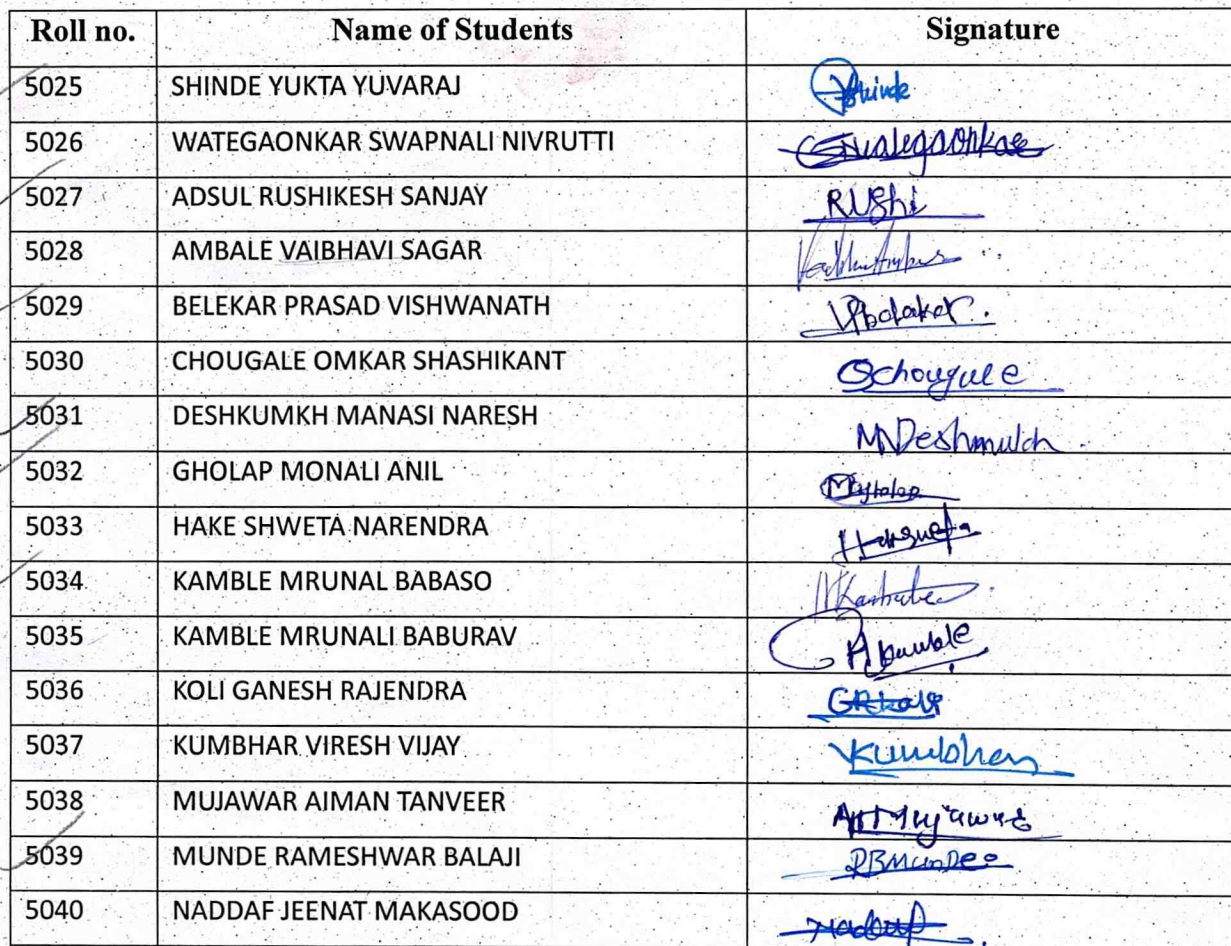 Roll no. Name of Students Signature
5025 SHINDE YUKTA YUVARAJ Yshinde
5026 WATEGAONKAR SWAPNALI NIVRUTTI
5027 ADSUL RUSHIKESH SANJAY RUshi
5028 AMBALE VAIBHAVI SAGAR
5029 BELEKAR PRASAD VISHWANATH
5030 CHOUGALE OMKAR SHASHIKANT Ochougule
5031 DESHKUMKH MANASI NARESH MNDeshmukh
5032 GHOLAP MONALI ANIL
5033 HAKE SHWETA NARENDRA
5034 KAMBLE MRUNAL BABASO
5035 KAMBLE MRUNALI BABURAV
5036 KOLI GANESH RAJENDRA GRKoli
5037 KUMBHAR VIRESH VIJAY VKumbhar
5038 MUJAWAR AIMAN TANVEER
5039 MUNDE RAMESHWAR BALAJI RBMunDee
5040 NADDAF JEENAT MAKASOOD